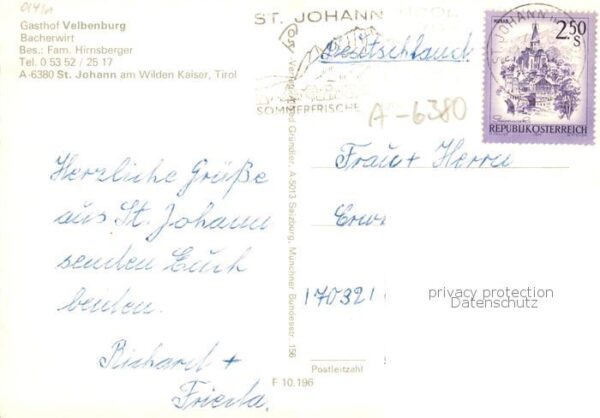 Gasthof Velbenburg
Bacherwirt
Bes.: Fam. Hirnsberger
Tel. 0 53 52 / 25 17
A-6380 St. Johann am Wilden Kaiser, Tirol
Herzliche Grüße
aus St. Johann
senden Euch
beiden.
Richard +
Frieda.
F 10.196
Verlag Arnold Grundler, A-5013 Salzburg, Münchner Bundesstr. 156
ST. JOHANN
SOMMERFRISCHE
Deutschland
A-6380
2.50
S
REPUBLIK ÖSTERREICH
Frau + Herrn
Erw
170321
Postleitzahl
privacy protection
Datenschutz